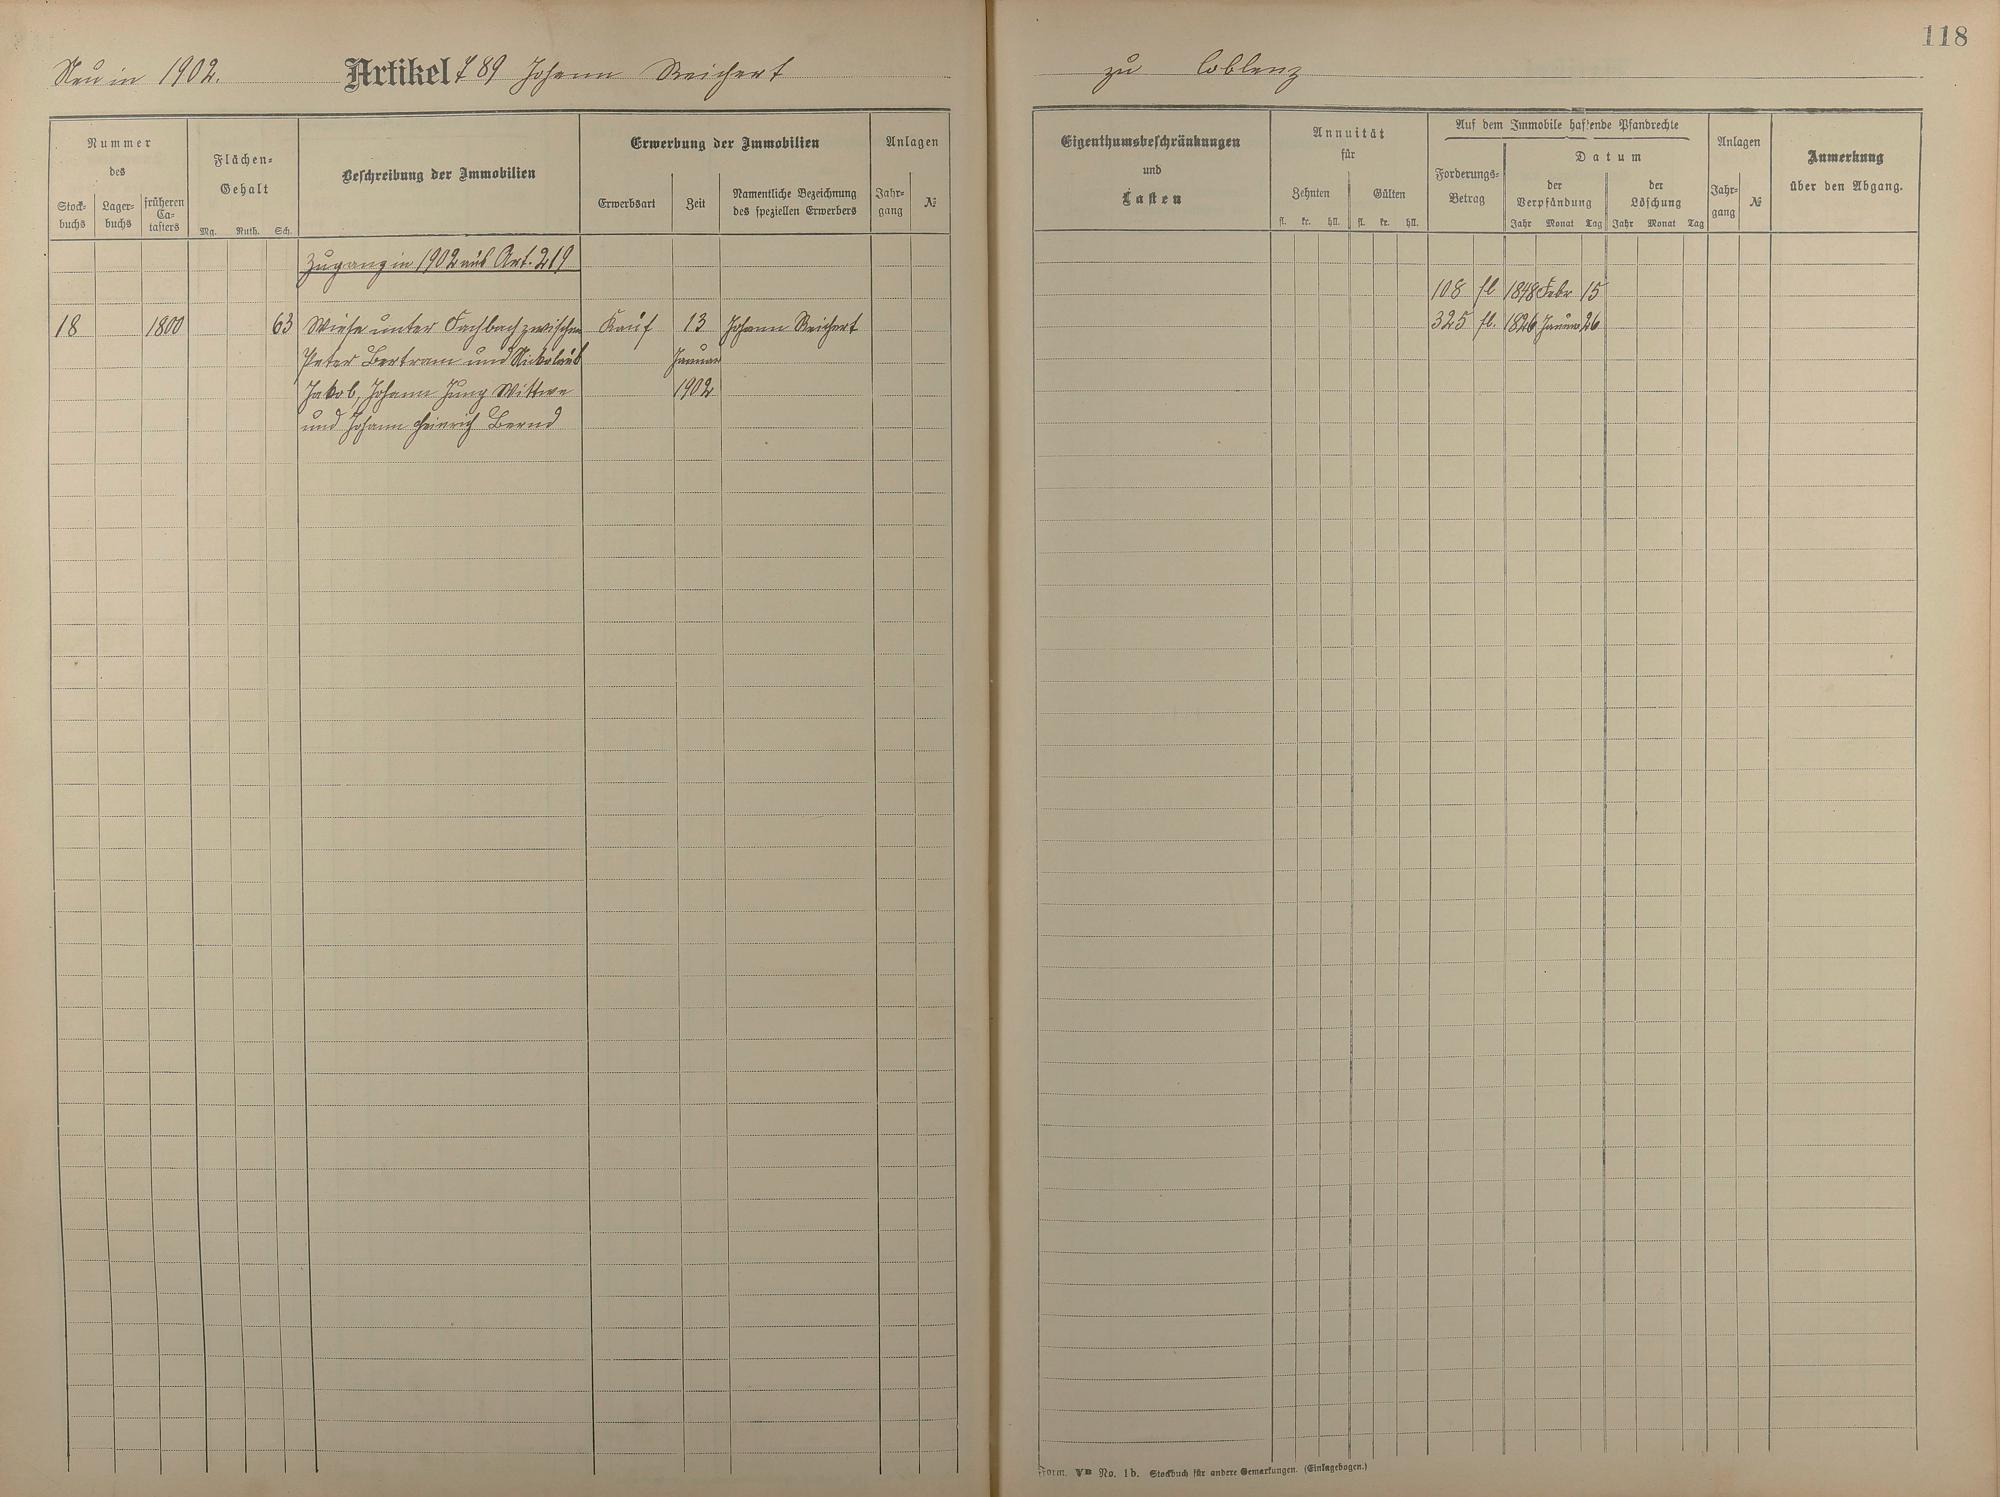 118
Neu in 1902. Artikel 789 Johann Reichert zu Coblenz
Nummer
des
Stock-
buchs
Lager-
buchs
früheren
Ca-
tasters
Flächen-
Gehalt
Mg. Ruth. Sch.
Beschreibung der Immobilien
Erwerbung der Immobilien
Erwerbsart
Zeit
Namentliche Bezeichnung
des speziellen Erwerbers
Anlagen
Jahr-
gang
№
Eigenthumsbeschränkungen
und
Lasten
Annuität
für
Zehnten
Gülten
fl. kr. hll. fl. kr. hll.
Auf dem Immobile haftende Pfandrechte
Forderungs-
Betrag
Datum
der
Verpfändung
Jahr Monat Tag
der
Löschung
Jahr Monat Tag
Anlagen
Jahr-
gang
№
Anmerkung
über den Abgang.
Zugang in 1902 aus Art. 219
18 1800 63 Wiese unter Fachbach zwischen Kauf 13 Johann Reichert
Peter Bertram und Nickolaus Januar
Jakob, Johann Jung Wittwe 1902
und Johann Heinrich Bernd
108 fl 1848 Febr 15
325 fl. 1826 Januar 26
Form. VB No. 1b. Stockbuch für andere Gemarkungen. (Einlagebogen.)